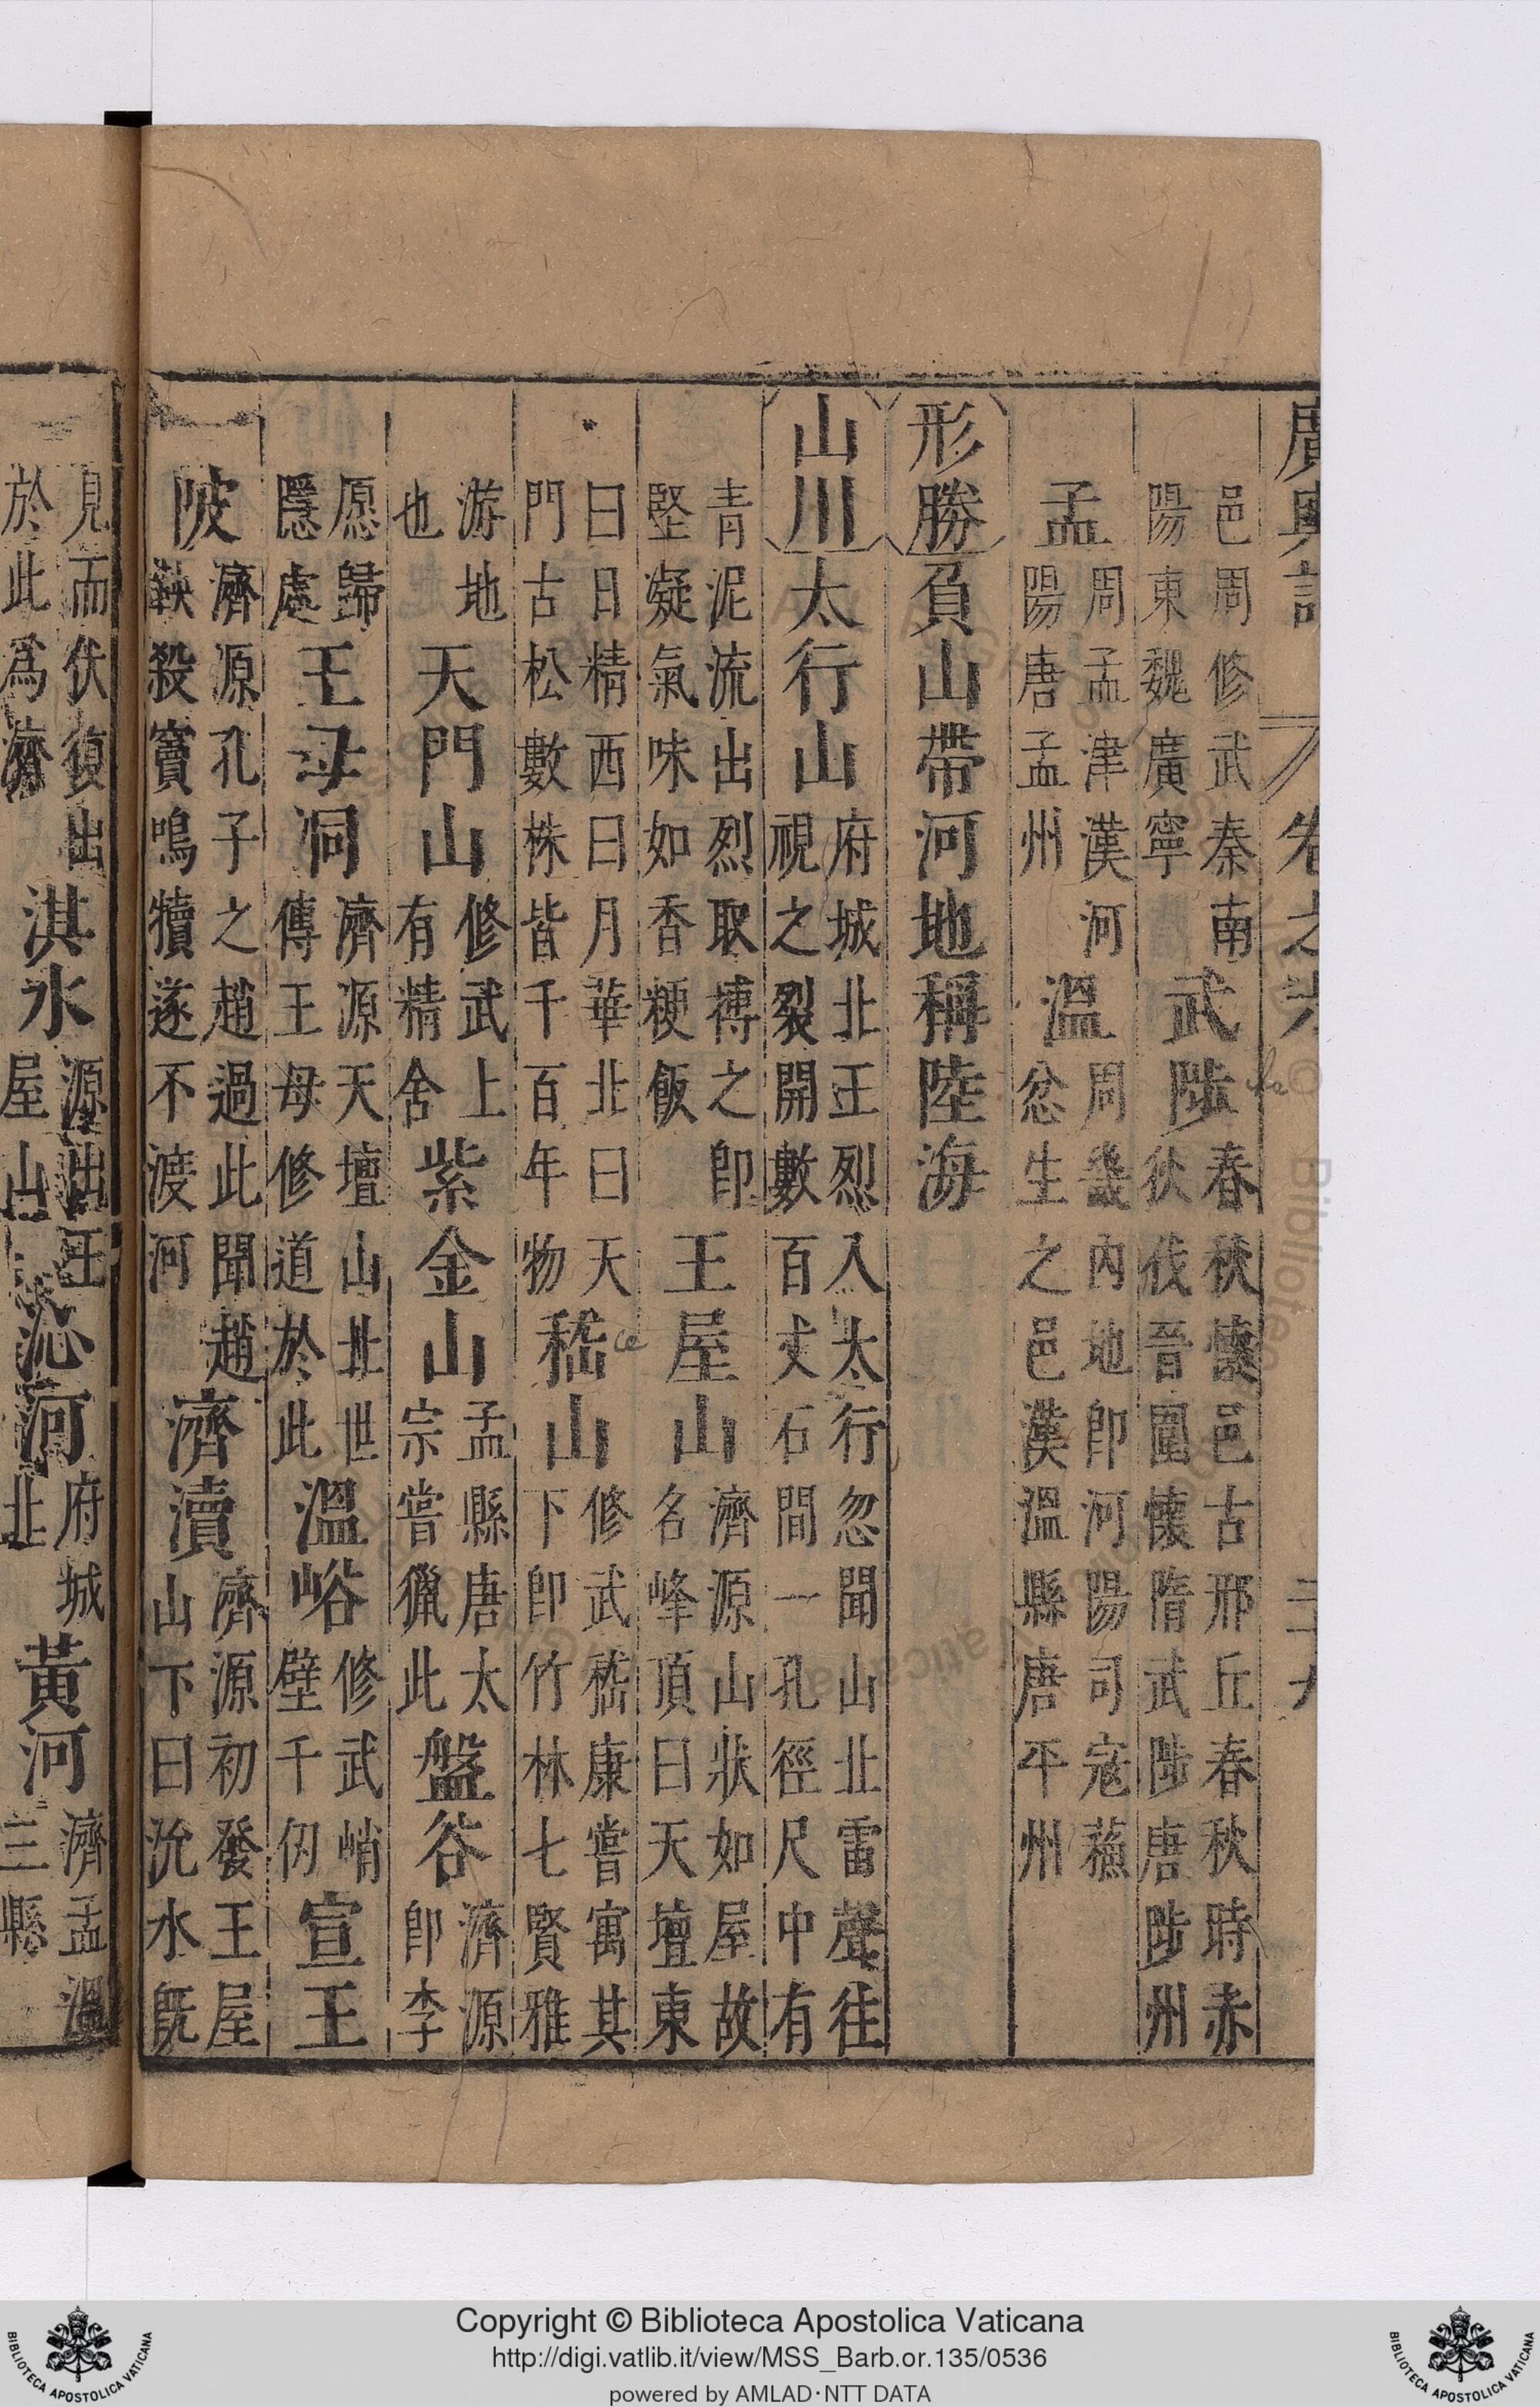 廣輿記 卷之六
邑周修武秦南陽東魏廣寧武陟春秋懷邑古邢丘春秋時赤狄伐晉圍懷隋武陟唐陟州
孟周孟津漢河陽唐孟州溫周畿內地即河陽司寇蘓忿生之邑漢溫縣唐平州
形勝負山帶河地稱陸海
山川太行山府城北王烈入太行忽聞山北雷聲往視之裂開數百丈石間一孔徑尺中有
青泥流出烈取摶之即堅凝氣味如香粳飯王屋山濟源山狀如屋故名峰頂曰天壇東
曰日精西曰月華北曰天門古松數株皆千百年物嵇山修武嵇康嘗寓其下即竹林七賢雅
游地也天門山修武上有精舍紫金山孟縣唐太宗嘗獵此盤谷濟源即李
愿歸隱處王母洞濟源天壇山北世傳王母修道於此溫峪修武峭壁千仞宣王
陂濟源孔子之趙過此聞趙鞅殺竇鳴犢遂不渡河濟瀆濟源初發王屋山下曰沇水既
見而伏復出於此為濟淇水源出王屋山沁河府城北黃河濟孟溫三縣
Copyright © Biblioteca Apostolica Vaticana
http://digi.vatlib.it/view/MSS_Barb.or.135/0536
powered by AMLAD·NTT DATA
BIBLIOTECA APOSTOLICA VATICANA
BIBLIOTECA APOSTOLICA VATICANA